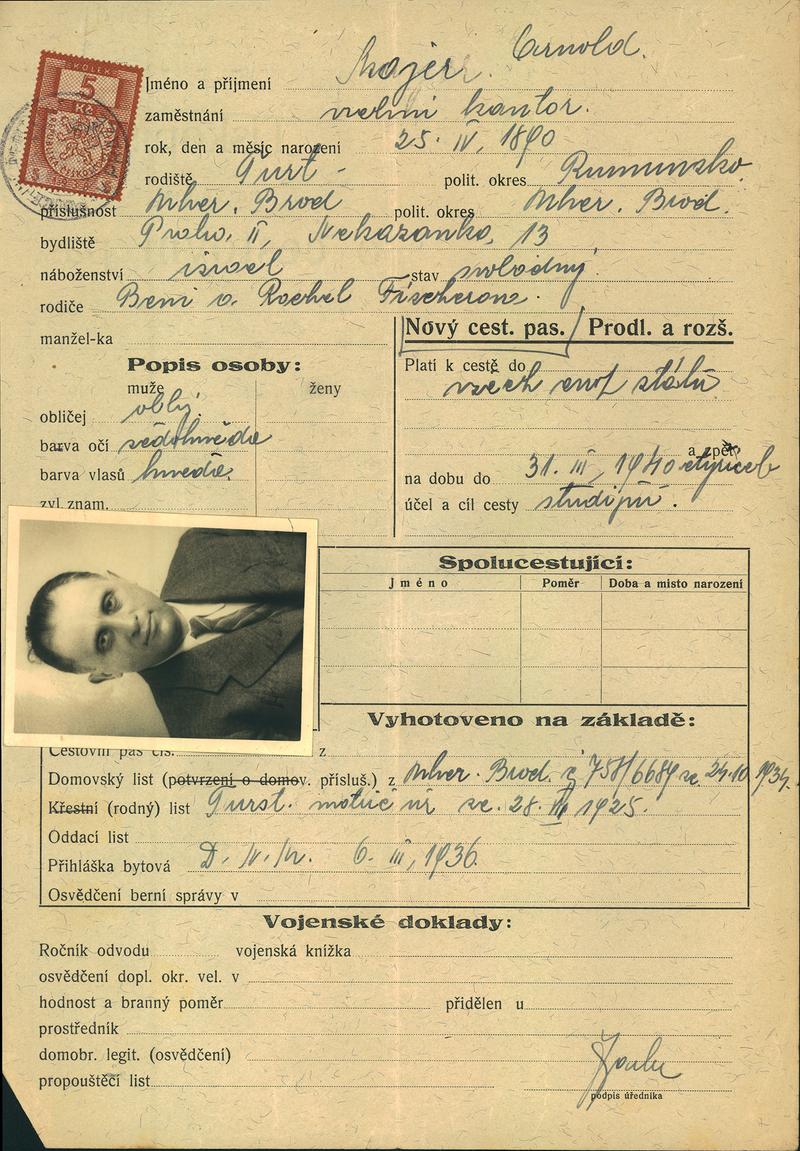 KOLEK
5
Kč
Jméno a přijmení Majer Arnold.
zaměstnání vrchní kantor.
rok, den a měsíc narození 25. IV, 1890
rodiště Turt - polit. okres Rumunsko.
příslušnost Uher. Brod polit. okres Uher. Brod.
bydliště Praha, II, Nekazanka, 13
náboženství israel stav svobodný.
rodiče Beni a Rachel Fischerova.
manžel-ka
Nový cest. pas. / Prodl. a rozš.
Popis osoby:
muže ženy
obličej oblý.
barva očí šedohnědá
barva vlasů hnědá,
zvl. znam.
Platí k cestě do
všech evrp států
a zpět
na dobu do 31. III, 1940
účel a cíl cesty studijní.
Spolucestující:
Jméno Poměr Doba a misto narození
Vyhotoveno na základě:
Cestovní pas čís. z
Domovský list (potvrzení o domov. přísluš.) z Uher. Brod. č 758/6689 ze 24.10 1934.
Křestní (rodný) list Turst. matrič úř ze. 28. III 1925.
Oddací list
Přihláška bytová D. IV. 6. III, 1936
Osvědčení berní správy v
Vojenské doklady:
Ročník odvodu vojenská knížka
osvědčení dopl. okr. vel. v
hodnost a branný poměr přidělen u
prostředník
domobr. legit. (osvědčení)
propouštěčí list
podpis úředníka